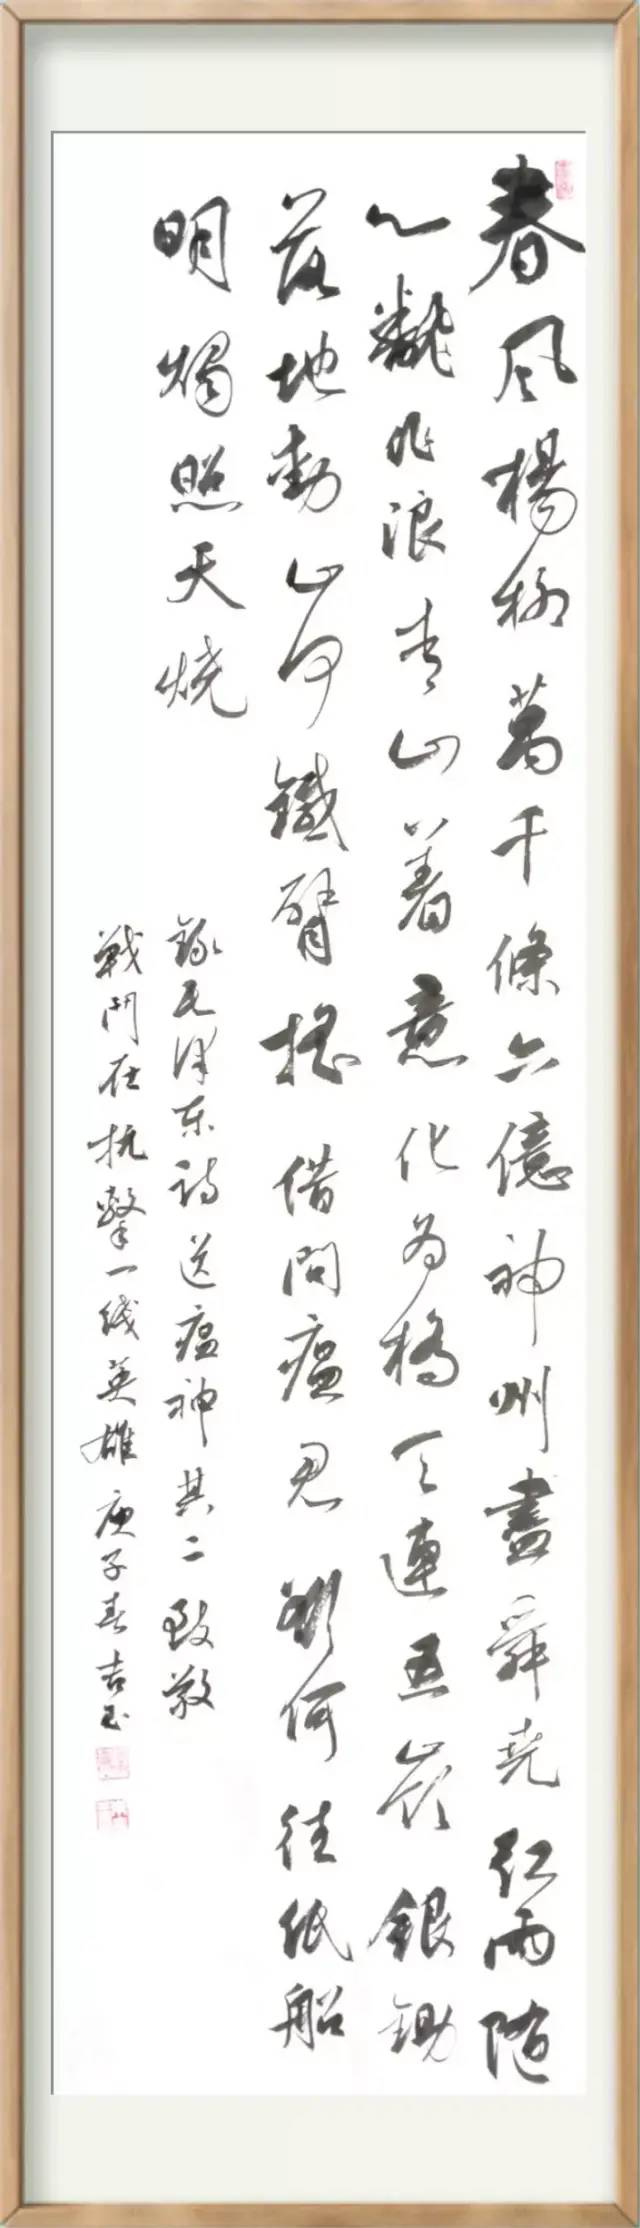 春風楊柳萬千條六億神州盡舜堯红雨随
心翻作浪青山着意化为橋天連五嶺銀鋤
落地動山河鐵臂摇借問瘟君欲何往紙船
明燭照天烧
錄毛泽东詩送瘟神其二 致敬
戰鬥在抗擊一线英雄 庚子春 吉玉